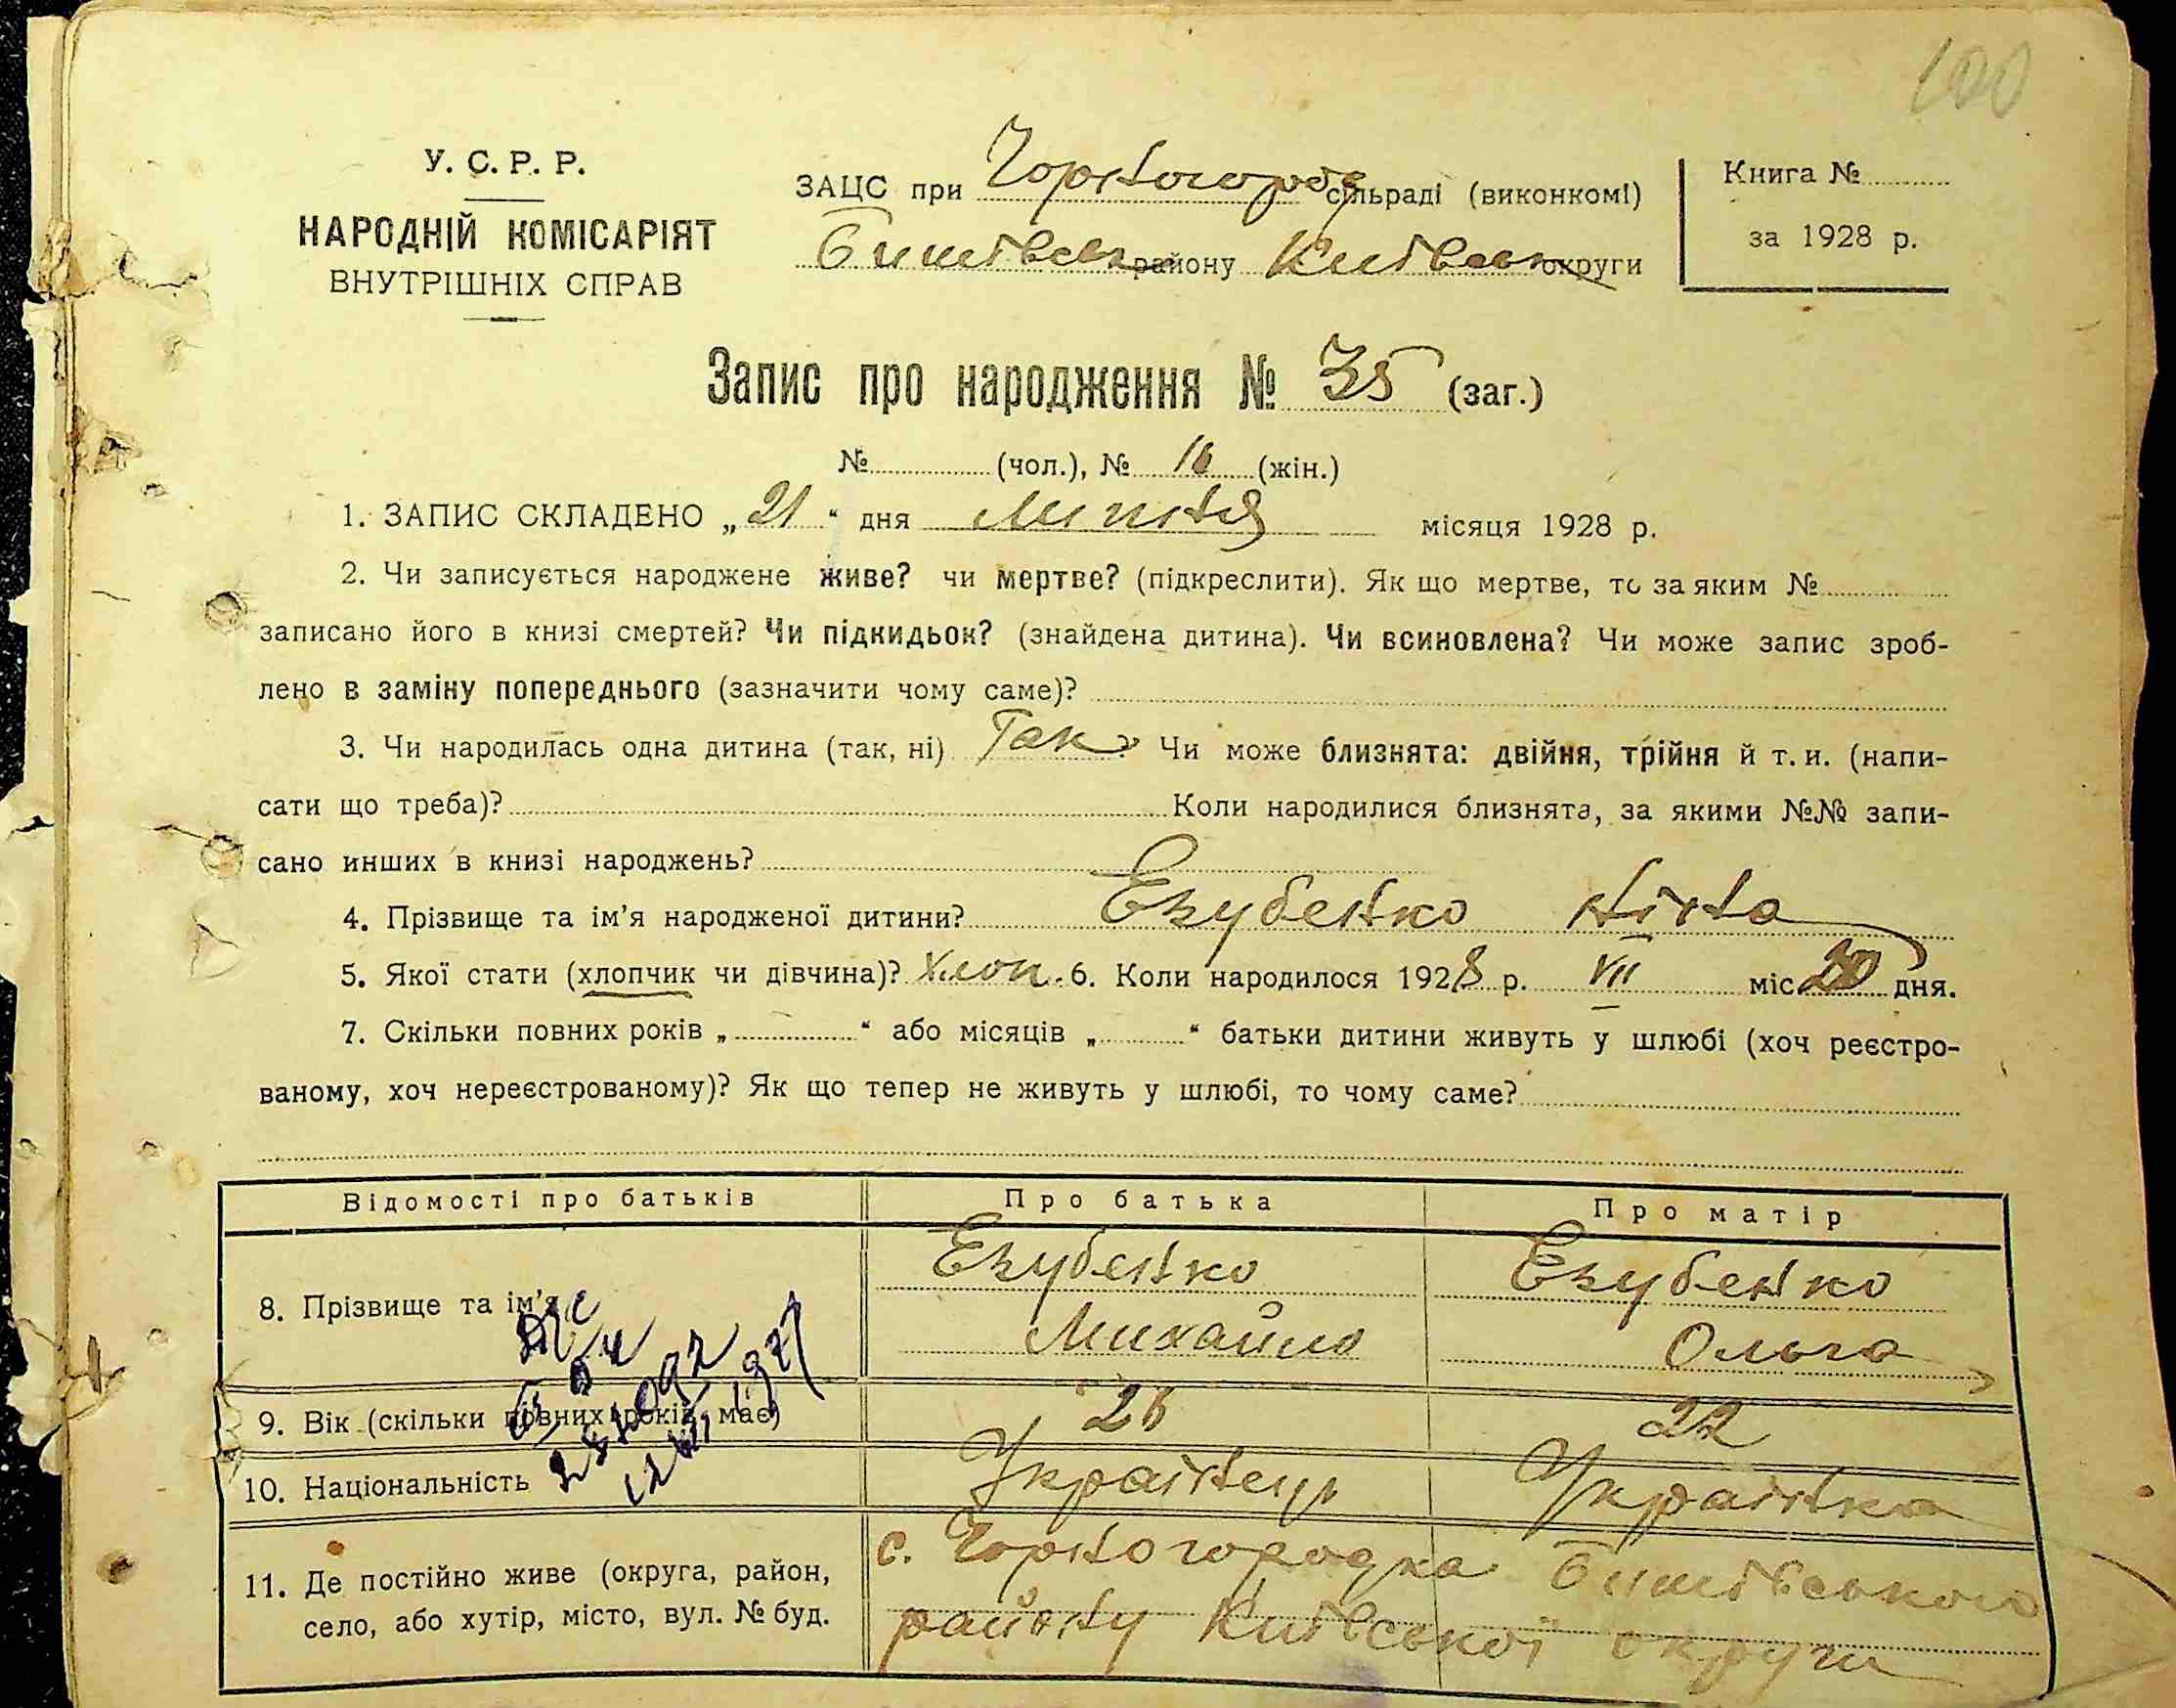 100
У. С. Р. Р.
НАРОДНІЙ КОМІСАРІЯТ
ВНУТРІШНІХ СПРАВ
ЗАЦС при Чорногород сільраді (виконкомі)
Бишівськ району Київськ округи
Книга №
за 1928 р.
Запис про народження № 35 (заг.)
№ (чол.), № 16 (жін.)
1. ЗАПИС СКЛАДЕНО „21“ дня Липня місяця 1928 р.
2. Чи записується народжене живе? чи мертве? (підкреслити). Як що мертве, то за яким №
записано його в книзі смертей? Чи підкидьок? (знайдена дитина). Чи всиновлена? Чи може запис зроб-
лено в заміну попереднього (зазначити чому саме)?
3. Чи народилась одна дитина (так, ні) Так Чи може близнята: двійня, трійня й т. и. (напи-
сати що треба)? Коли народилися близнята, за якими №№ запи-
сано инших в книзі народжень?
4. Прізвище та ім’я народженої дитини? Езубенко Ніна
5. Якої стати (хлопчик чи дівчина)? Хлоп. 6. Коли народилося 1928 р. VII міс 20 дня.
7. Скільки повних років „ “ або місяців „ “ батьки дитини живуть у шлюбі (хоч реєстро-
ваному, хоч нереєстрованому)? Як що тепер не живуть у шлюбі, то чому саме?
Відомості про батьків Про батька Про матір
8. Прізвище та ім’я Езубенко Михайло Езубенко Ольга
9. Вік (скільки повних років має) 26 22
10. Національність Українець Українка
11. Де постійно живе (округа, район,
село, або хутір, місто, вул. № буд.
с. Чорногородка Бишівського
району Київської округи